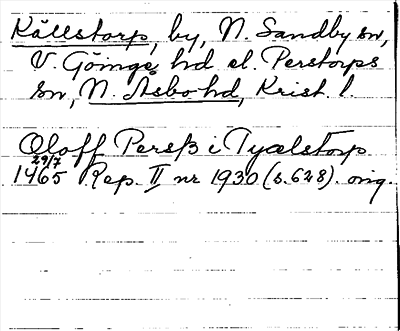 Källstorp, by, N. Sandby sn,
V. Göinge hd el. Perstorps
sn, N. Åsbo hd, Krist. l.
Oloff Persß i Tyælstorp
29/7
1465 Rep. II nr 1930 (s. 628). orig.